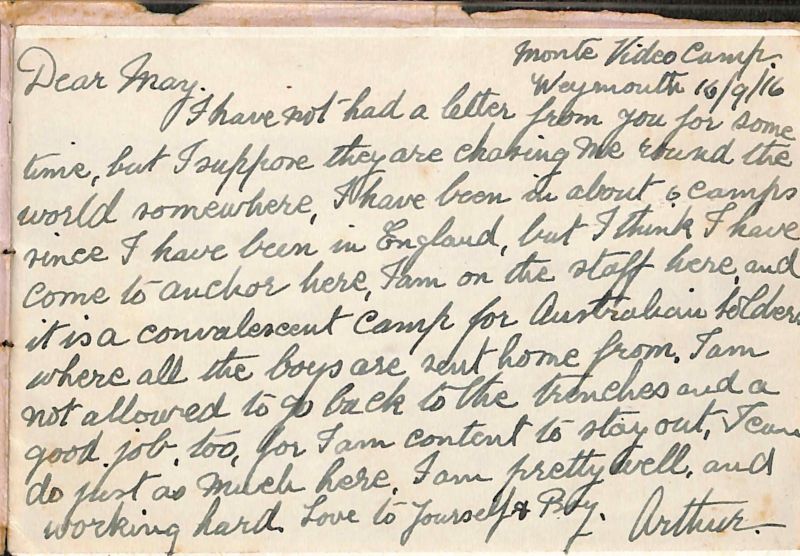 Monte Video Camp.
Weymouth 16/9/16
Dear May.
I have not had a letter from you for some
time, but I suppose they are chasing me round the
world somewhere, I have been in about 6 camps
since I have been in England, but I think I have
come to anchor here, I am on the staff here, and
it is a convalescent camp for Australian Solders
where all the boys are sent home from. I am
not allowed to go back to the trenches and a
good job, too, for I am content to stay out, I can
do just as much here. I am pretty well, and
working hard. Love to Yourself & Boy.
Arthur.